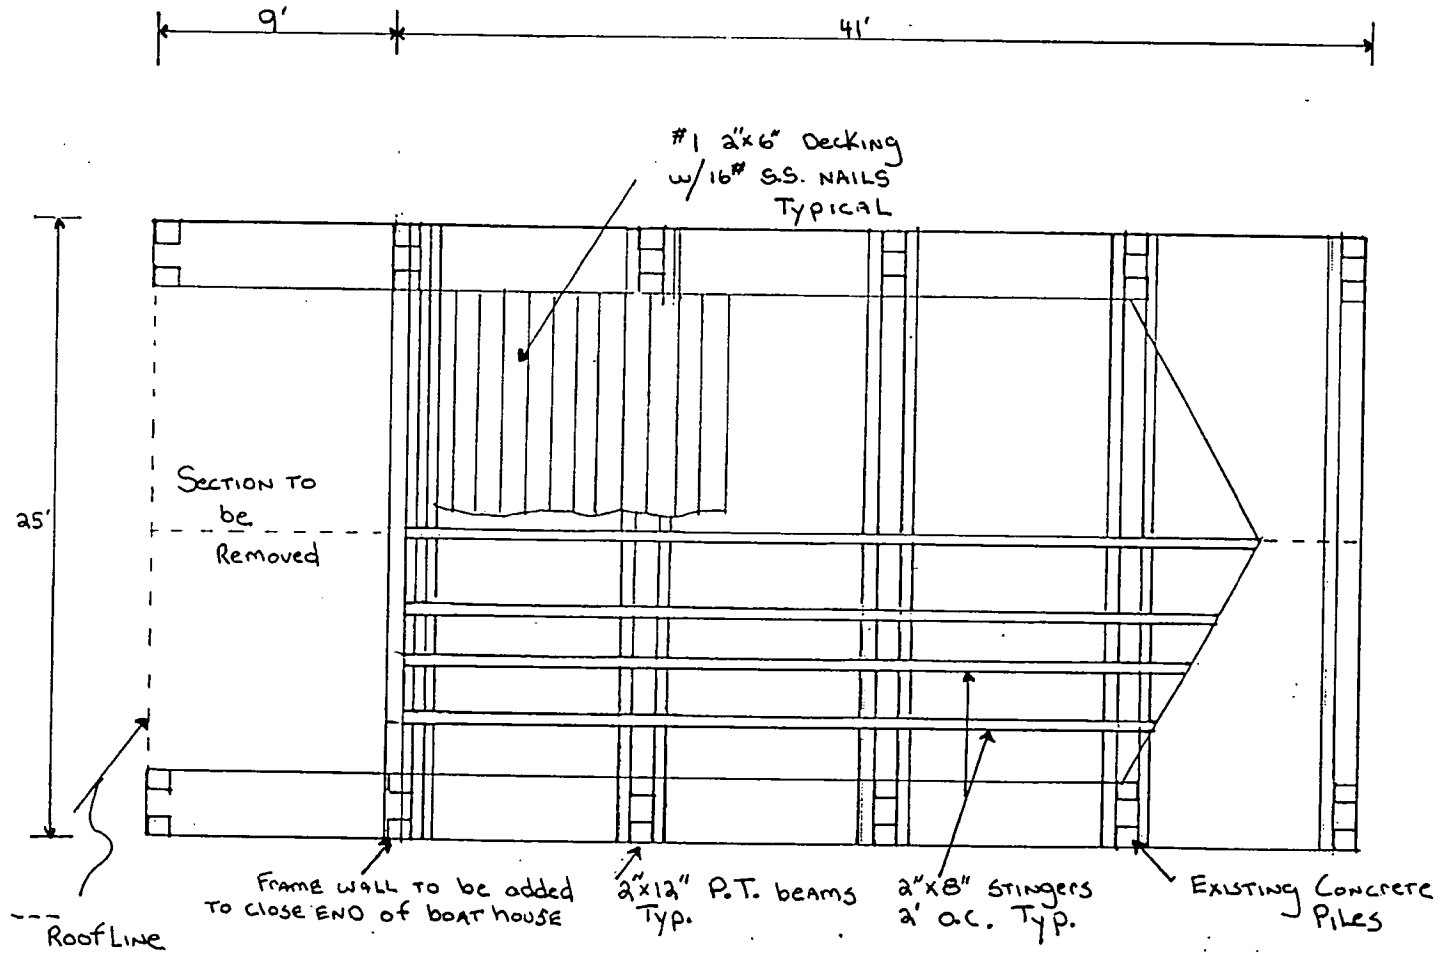 9'
41'
#1 2"x6" Decking
w/16# S.S. NAILS
TYPICAL
SECTION TO
be
Removed
25'
FRAME WALL TO be added
TO CLOSE END of boAT house
2"x12" P.T. beams
Typ.
2"x8" STINGERS
2' O.C. Typ.
EXISTING CONCRETE
PILES
RoofLine